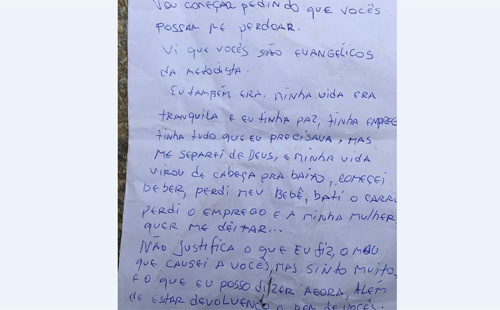 VOU COMEÇAR PEDINDO QUE VOCÊS
POSSAM ME PERDOAR.
VI QUE VOCÊS SÃO EVANGÉLICOS
DA METODISTA.
EU TAMBÉM ERA, MINHA VIDA ERA
TRANQUILA E EU TINHA PAZ, TINHA EMPREG
TINHA TUDO QUE EU PRECISAVA, MAS
ME SEPAREI DE DEUS, E MINHA VIDA
VIROU DE CABEÇA PRA BAIXO, COMEÇEI
BEBER, PERDI MEU BEBÊ, BATI O CARRO
PERDI O EMPREGO E A MINHA MULHER
QUER ME DEIXAR...
NÃO JUSTIFICA O QUE EU FIZ, O MAU
QUE CAUSEI A VOCÊS, MAS SINTO MUITO,
É O QUE EU POSSO DIZER AGORA, ALÉM
DE ESTAR DEVOLVENDO O BEM DE VOCÊS.